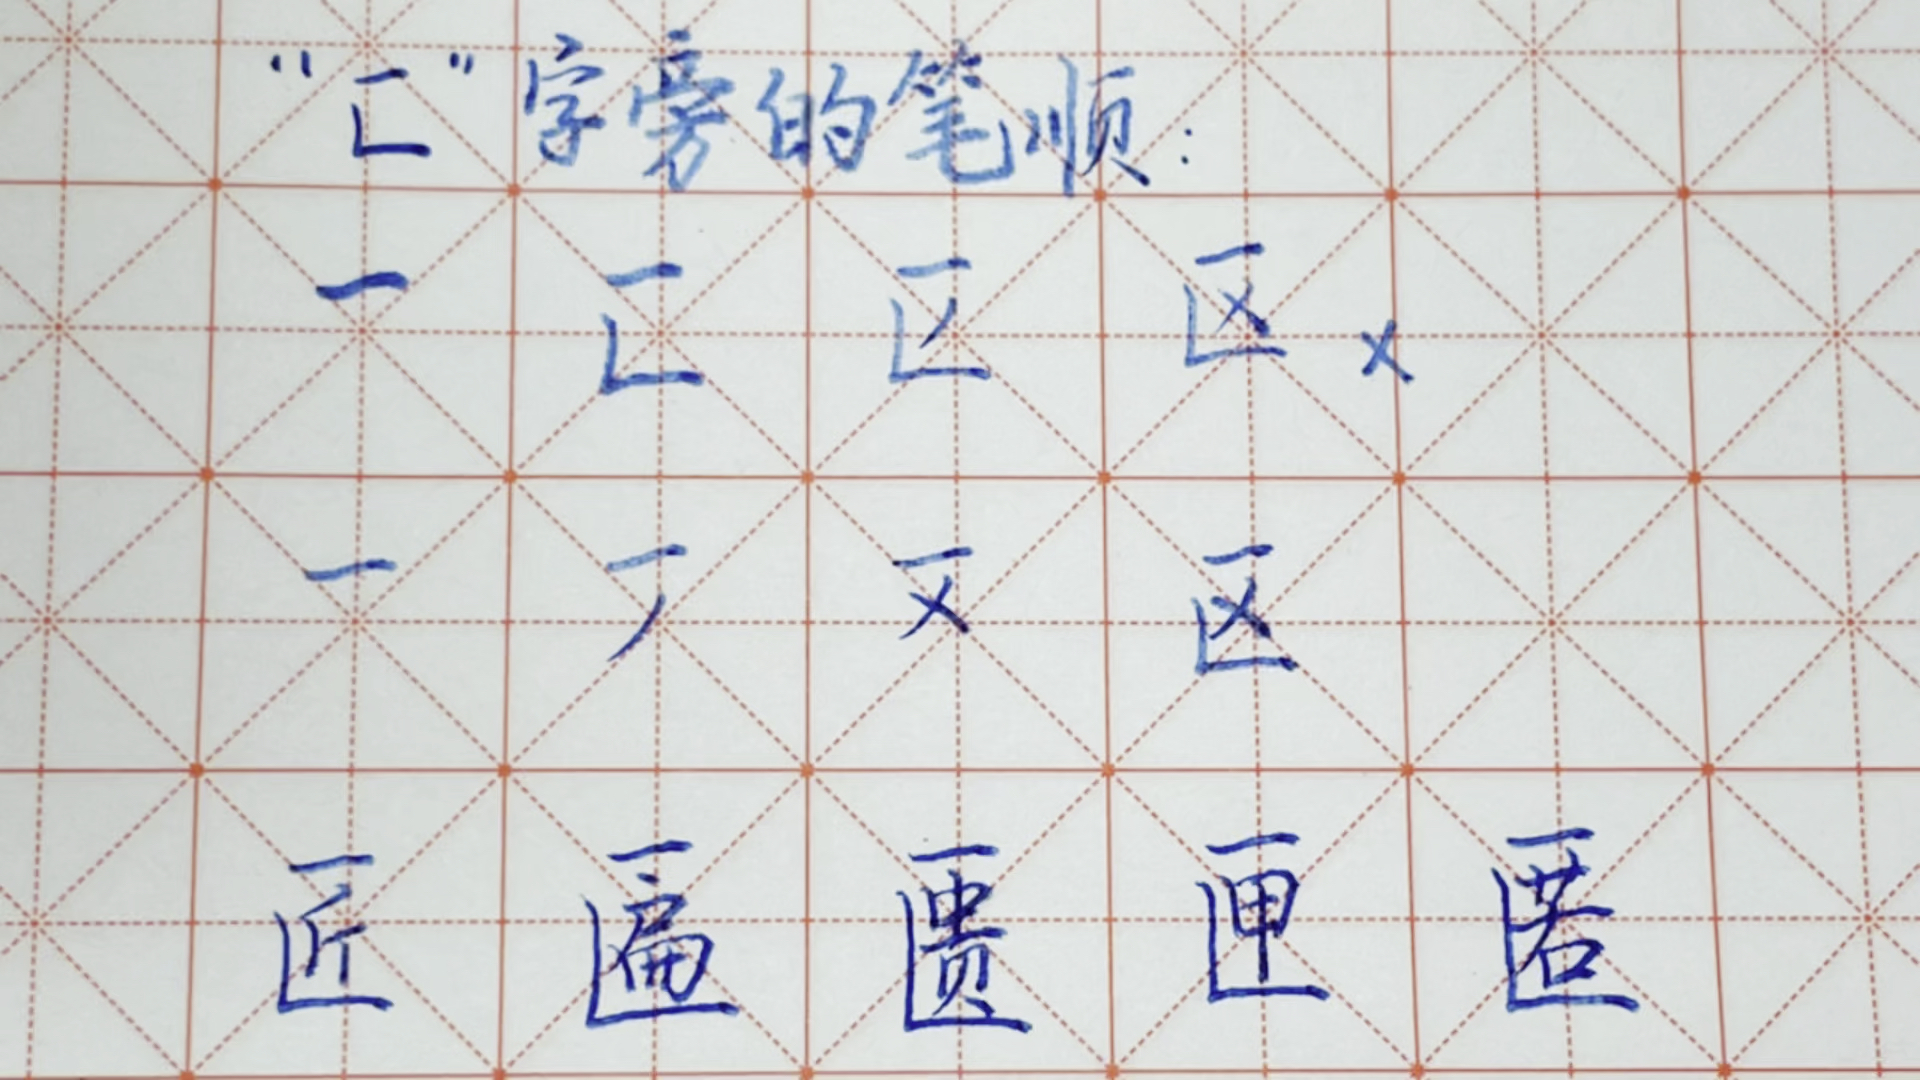 “匚”字旁的笔顺：
一 匚 区 ×
一 区
匠 匾 匮 匣 匿